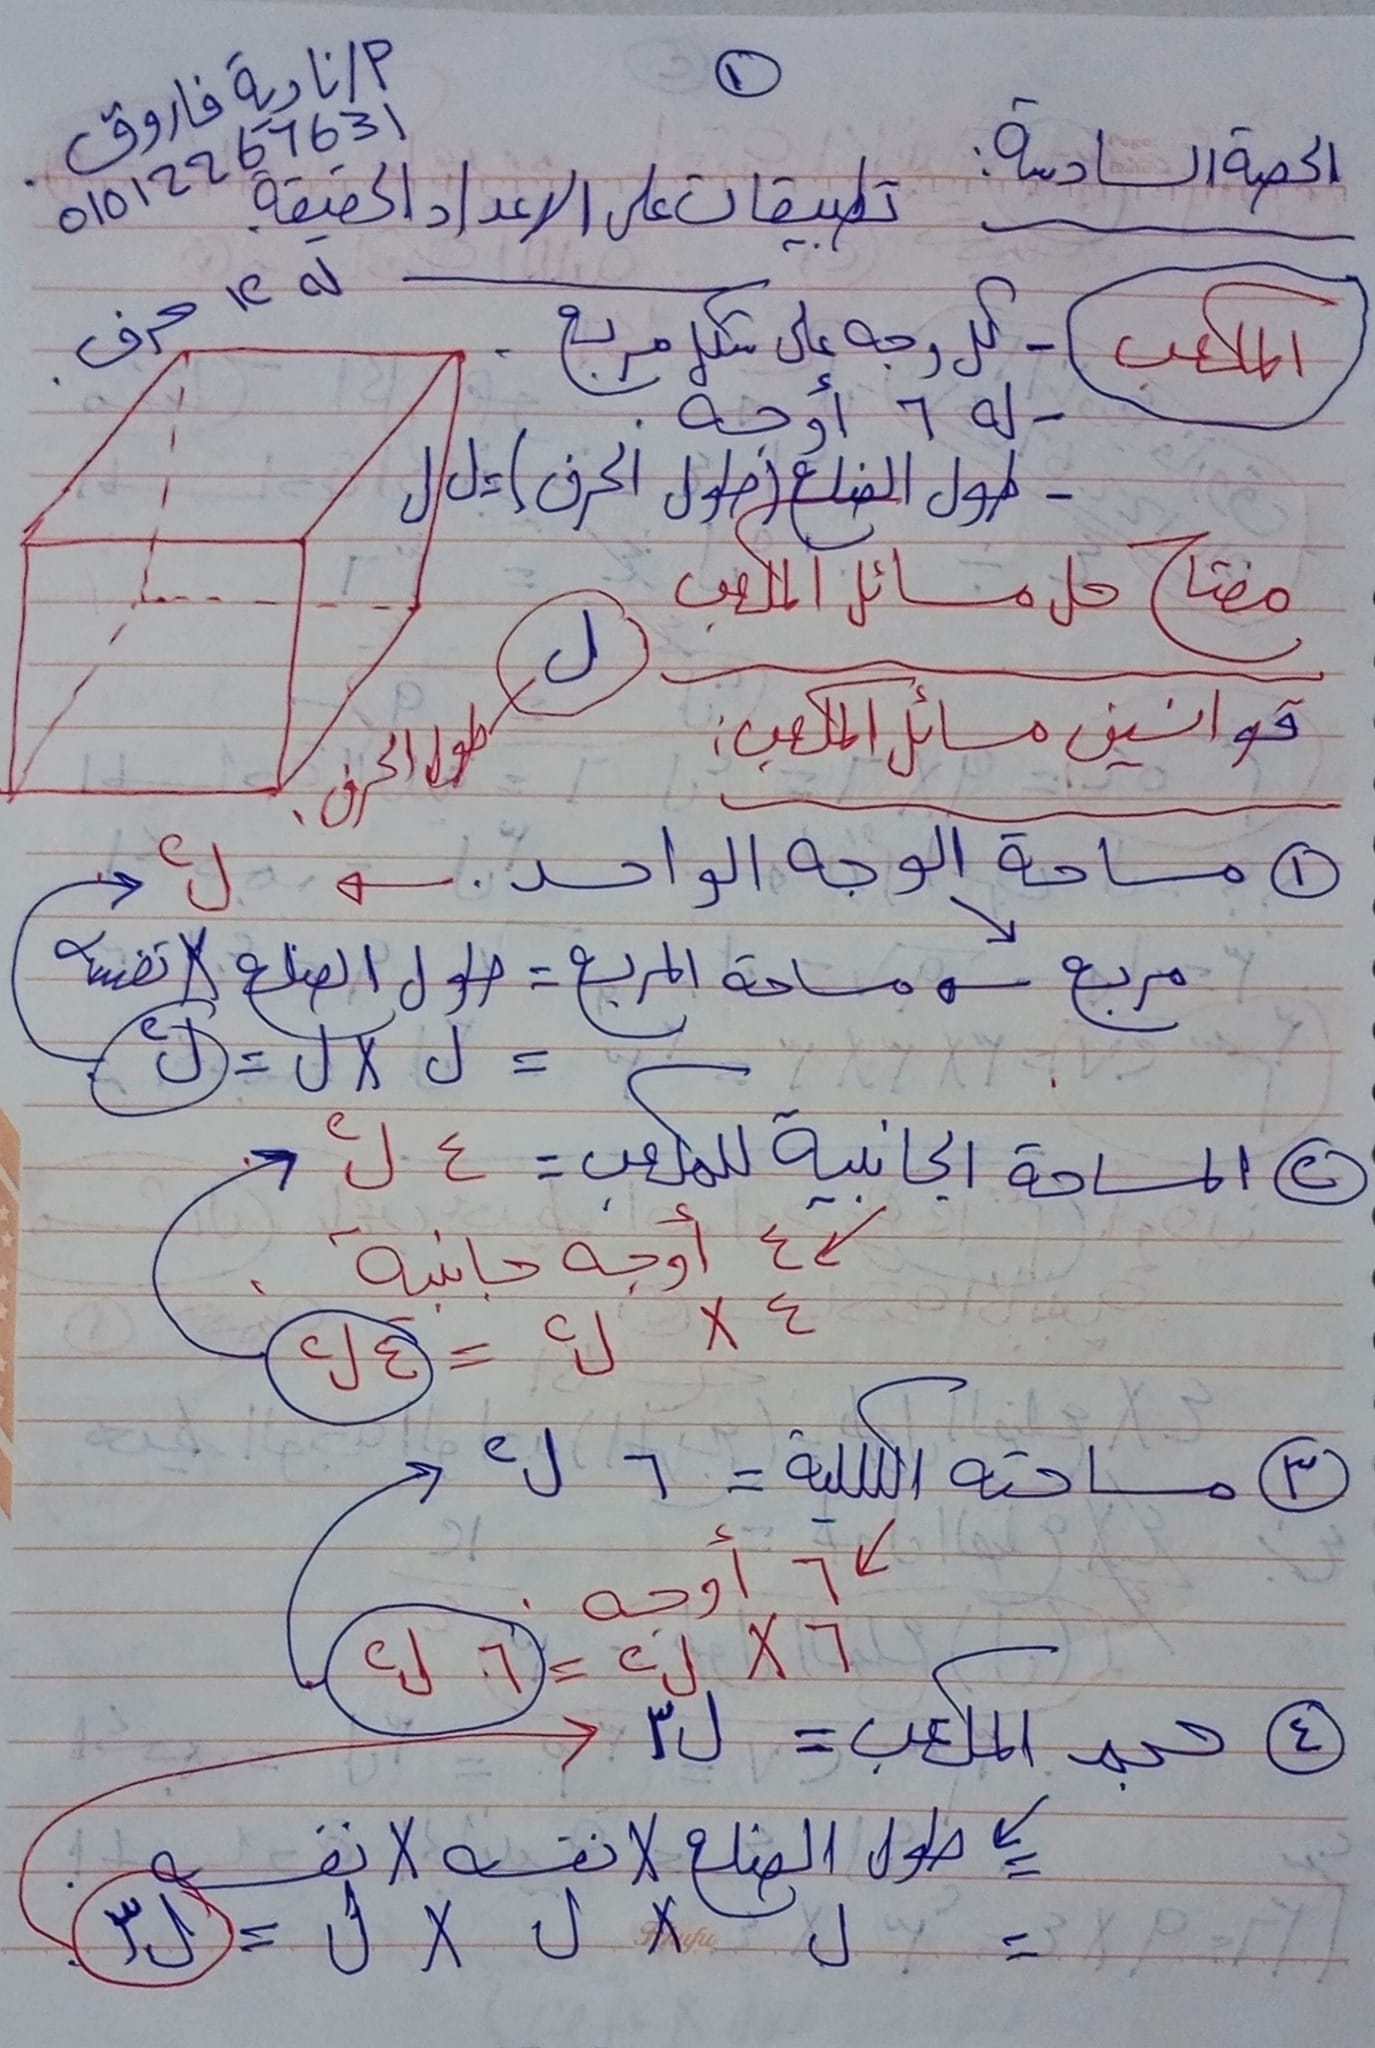 ١
م/نادية فاروق
01012267631
الحصة السادسة:
تطبيقات على الاعداد الحقيقية.
المكعب
- كل وجه على شكل مربع.
له ١٢ حرف.
- له ٦ أوجه.
- طول الضلع (طول الحرف) = ل
مفتاح حل مسائل المكعب
ل
طول الحرف.
قوانين مسائل المكعب:
١ مساحة الوجه الواحد. ← ل٢
مربع ← مساحة المربع = طول الضلع × نفسه
= ل × ل = ل٢
٢ المساحة الجانبية للمكعب = ٤ ل٢
٤ أوجه جانبية
٤ × ل٢ = ٤ ل٢
٣ مساحته الكلية = ٦ ل٢
٦ أوجه
٦ × ل٢ = ٦ ل٢
٤ حجم المكعب = ل٣
طول الضلع × نفسه × نفسه
= ل × ل × ل = ل٣